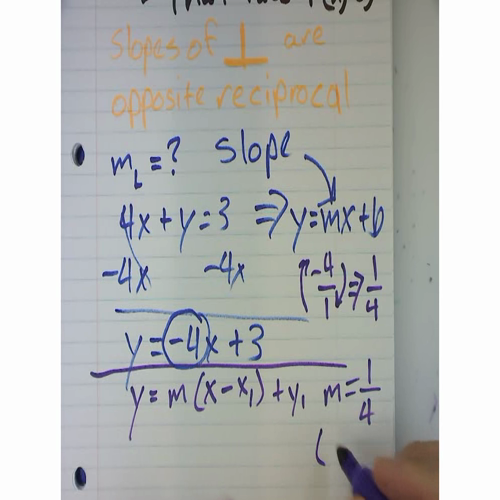 slopes of ⊥ are
opposite reciprocal
m⊥ = ? slope
4x + y = 3 ⇒ y = mx + b
-4x -4x (-4/1) ⇒ 1/4
y = -4x + 3
y = m(x - x₁) + y₁ m = 1/4
(